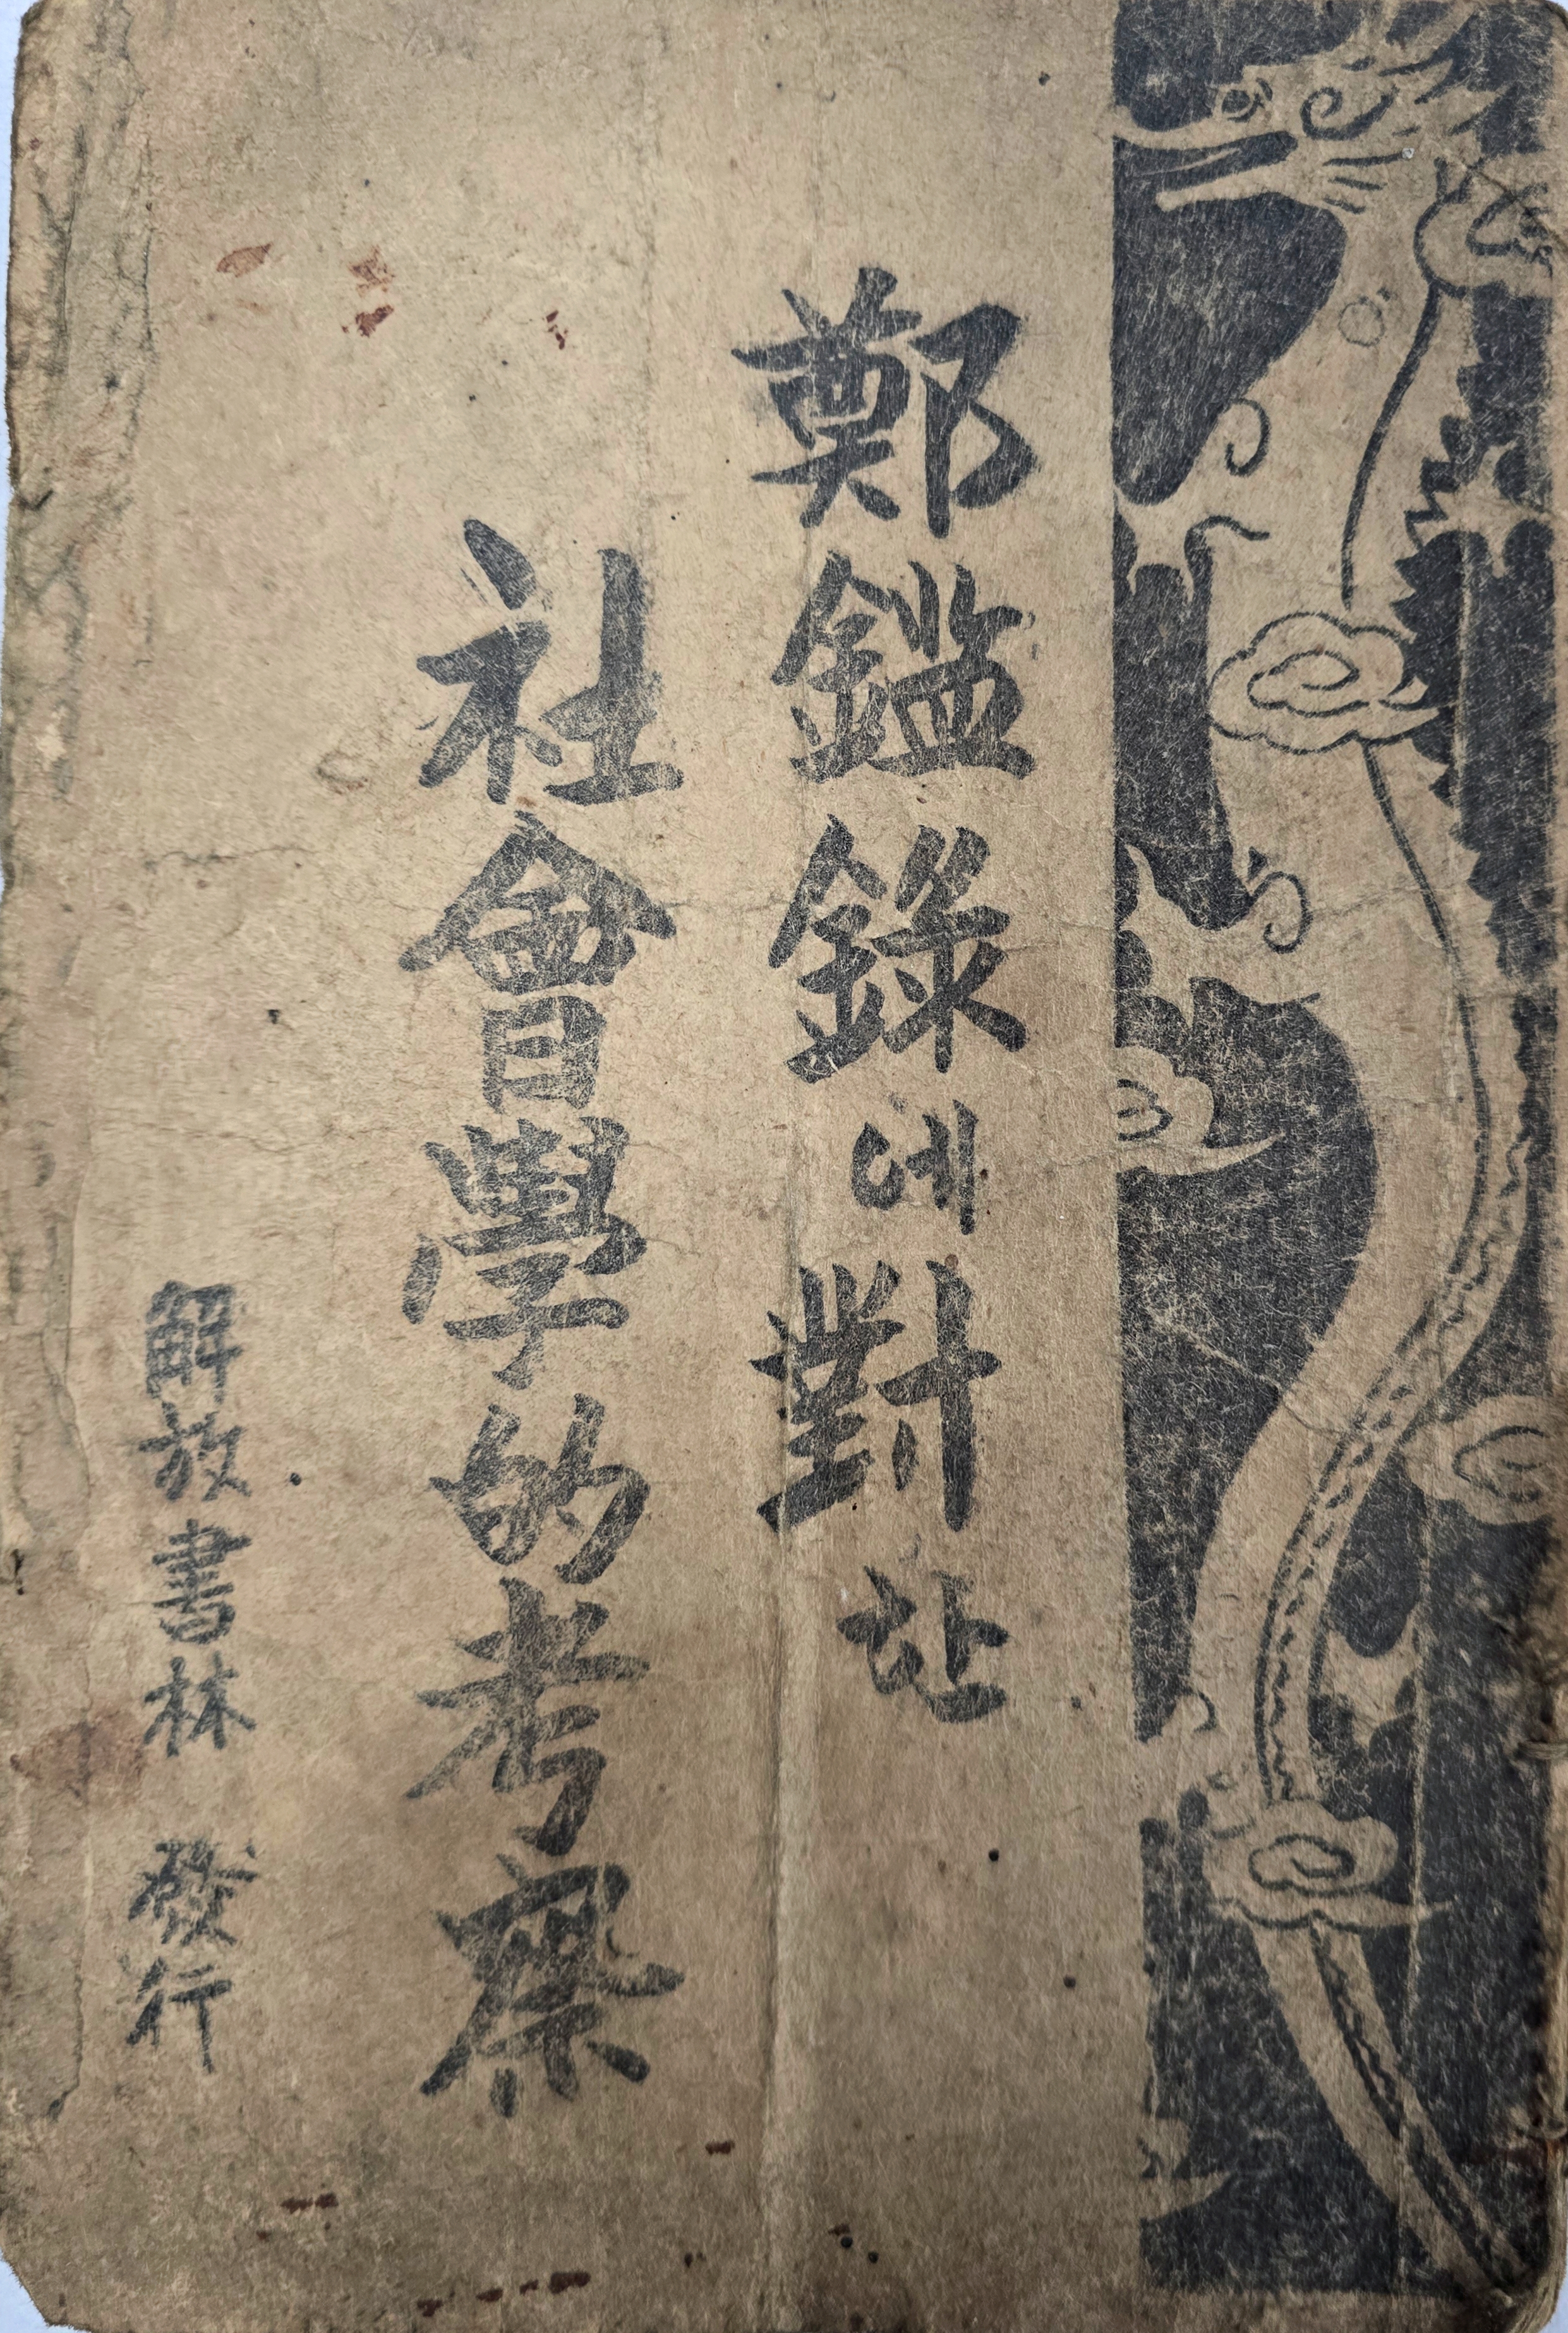 鄭鑑錄에對한
社會學的考察
解放書林 發行